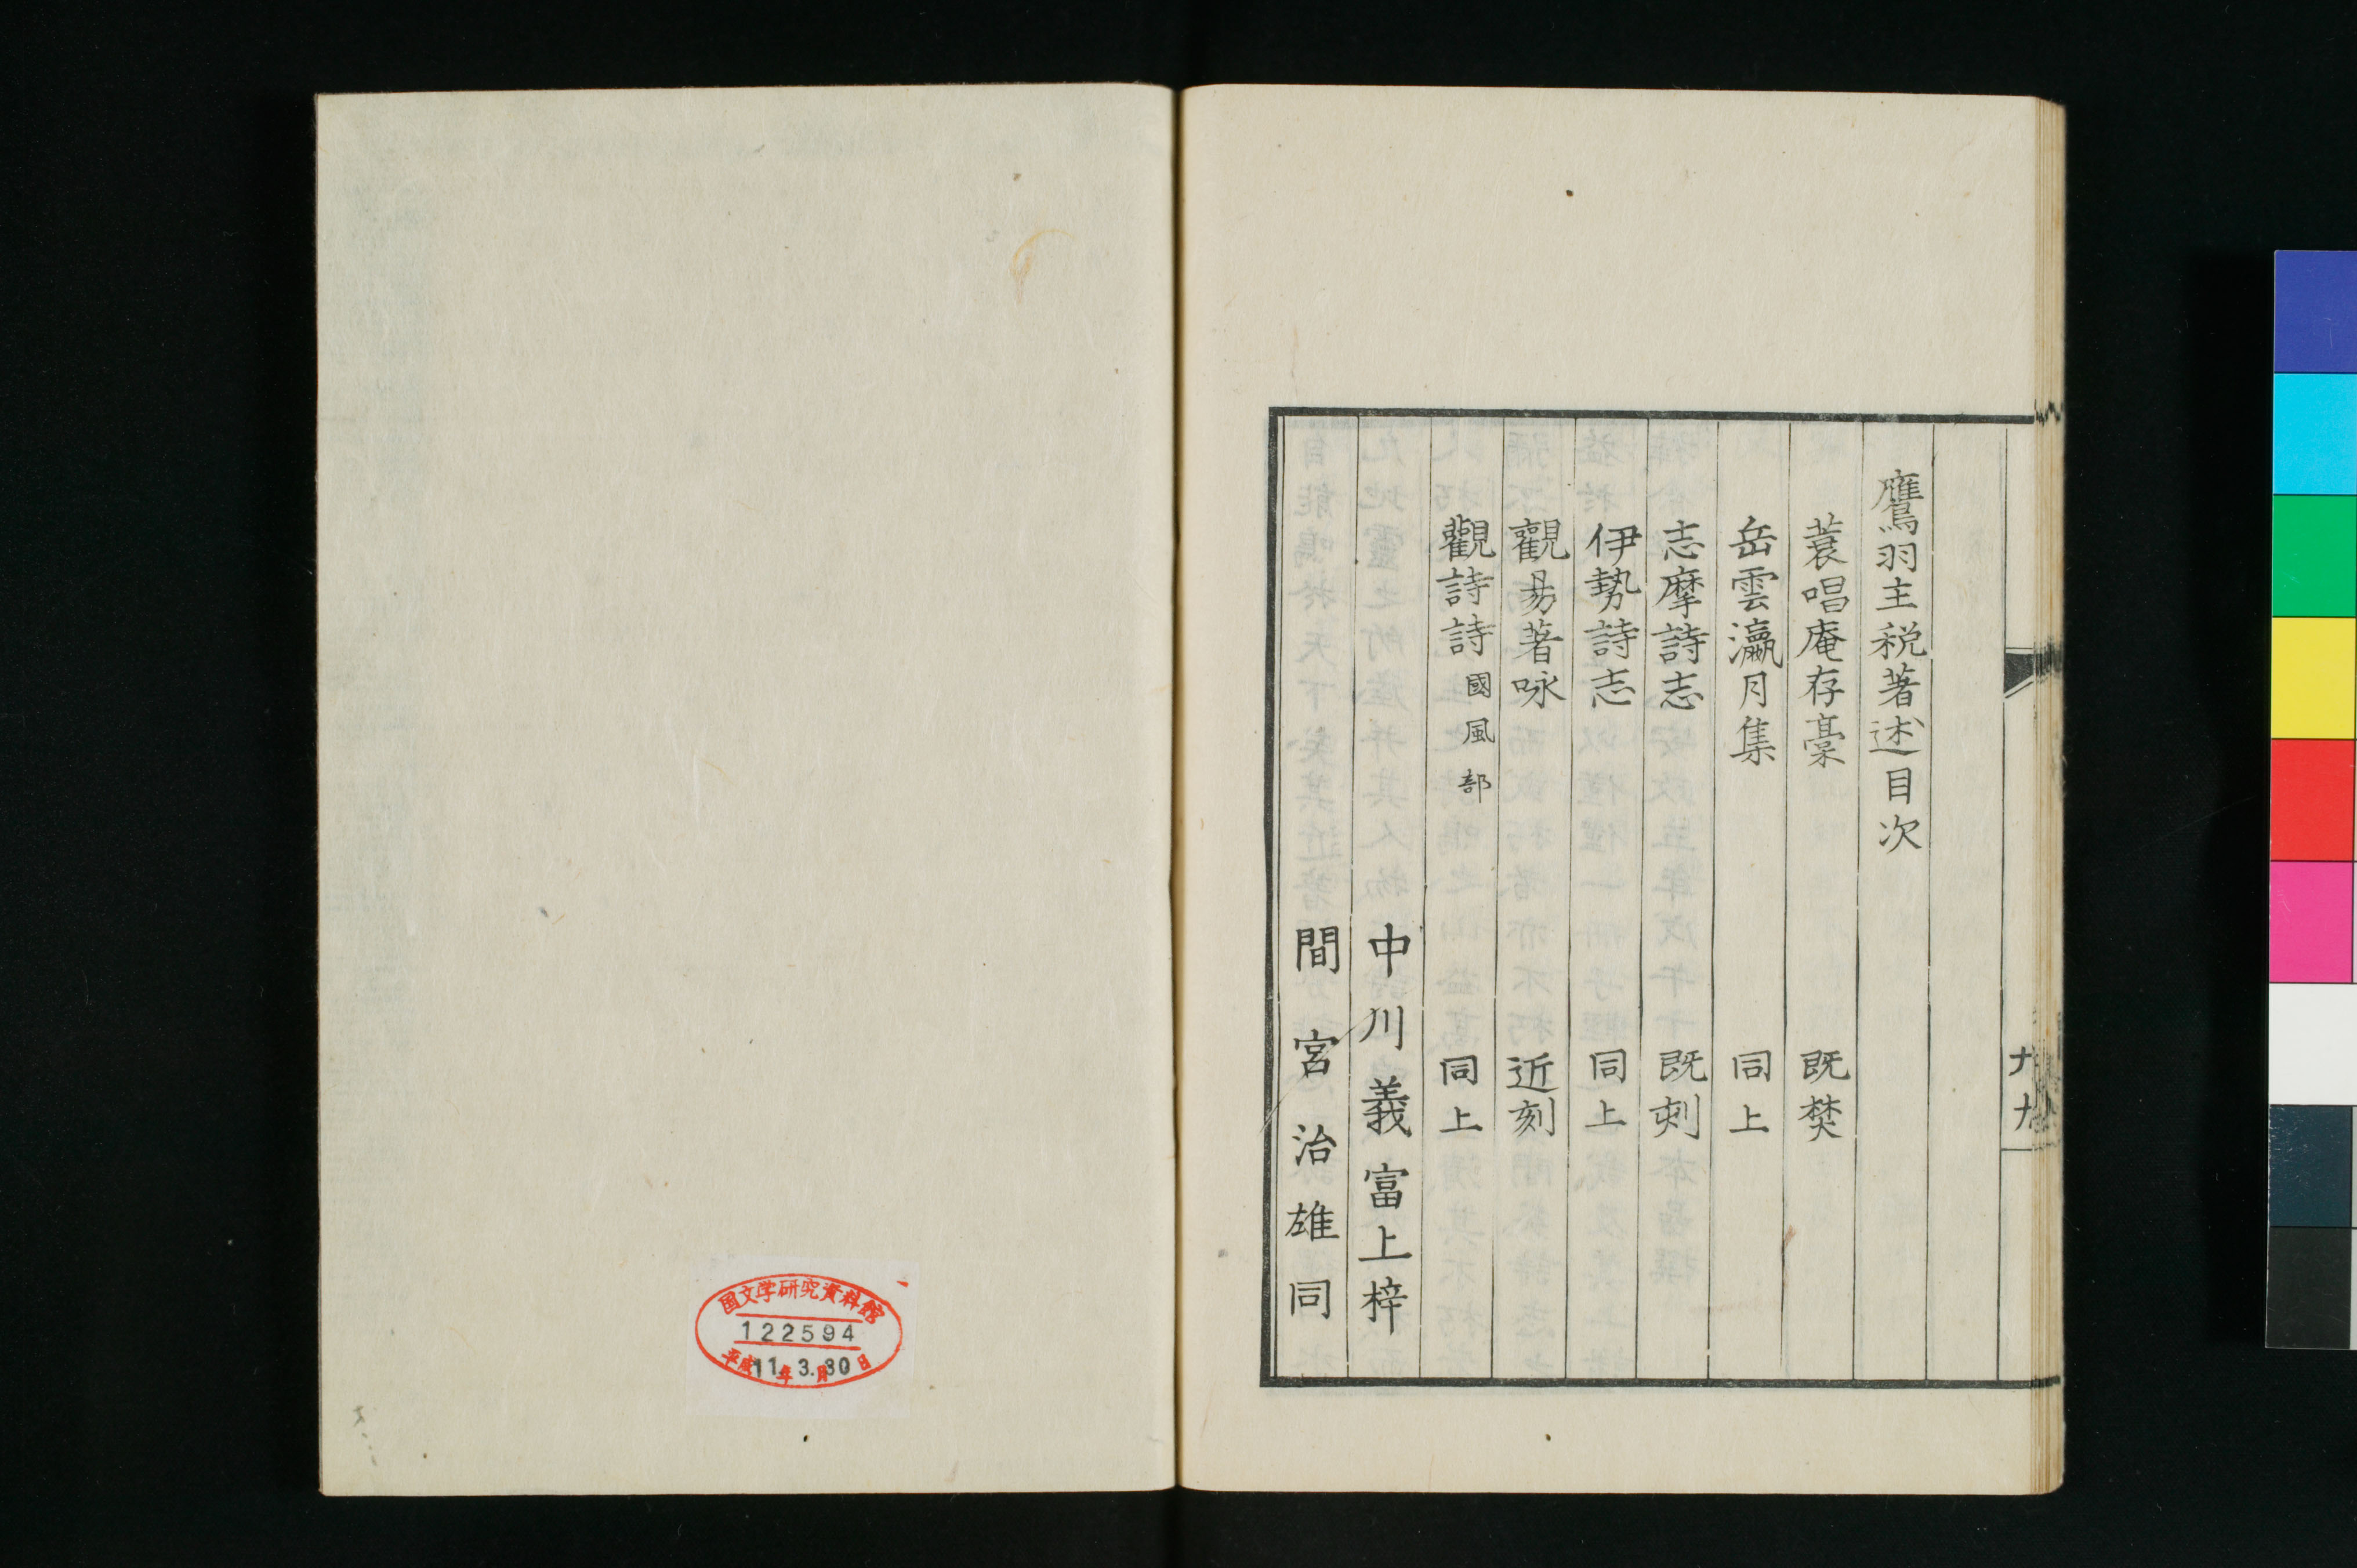 鷹羽主税著述目次
蓑唱庵存稾 既焚
岳雲瀛月集 同上
志摩詩志 既刻
伊勢詩志 同上
觀易著咏 近刻
觀詩詩 國風部 同上
中川義富上梓
間宮治雄同
国文学研究資料館
122594
平成11年3.月30日